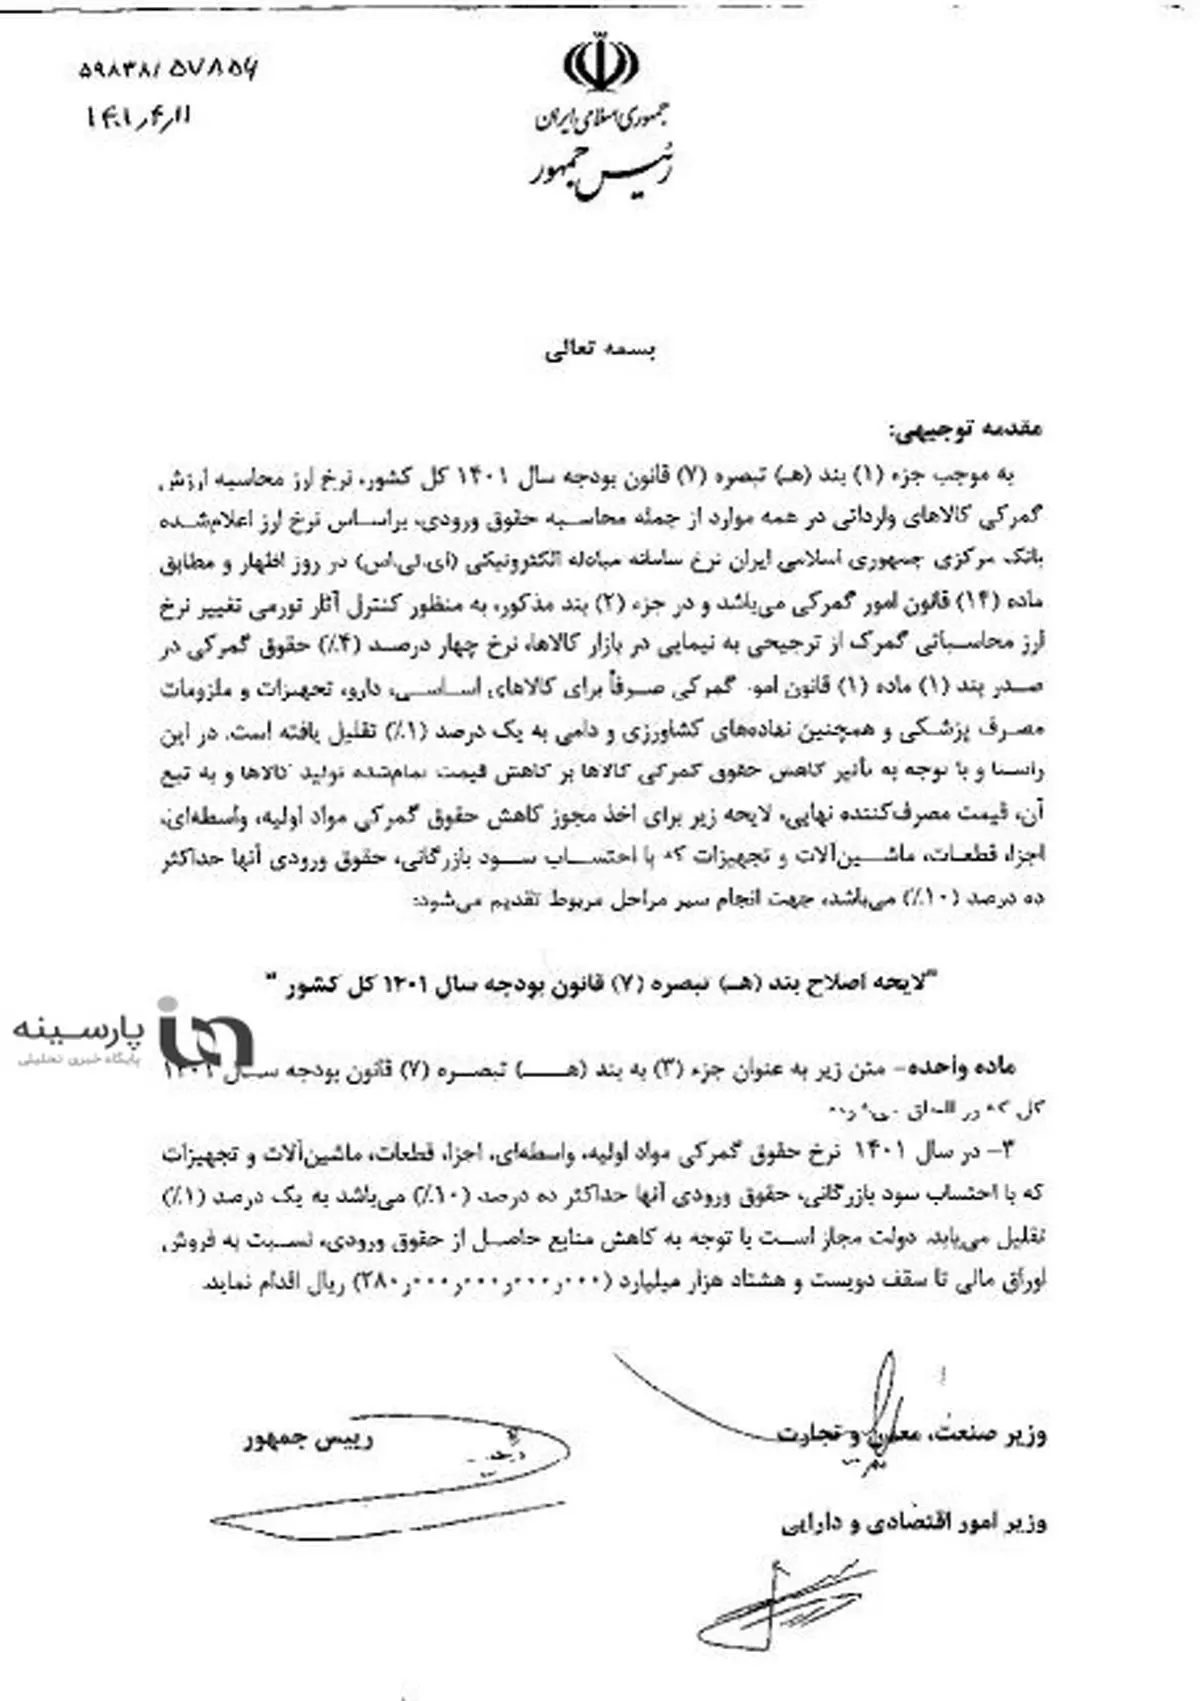 ۵۹۸۳۸/۵۷۸۵۶
۱۴۰۱٫۴٫۱۱
جمهوری اسلامی ایران
رئیس جمهور
بسمه تعالی
مقدمه توجیهی:
به موجب جزء (۱) بند (هـ) تبصره (۷) قانون بودجه سال ۱۴۰۱ کل کشور، نرخ ارز محاسبه ارزش
گمرکی کالاهای وارداتی در همه موارد از جمله محاسبه حقوق ورودی، براساس نرخ ارز اعلام‌شده
بانک مرکزی جمهوری اسلامی ایران نرخ سامانه مبادله الکترونیکی (ای.تی.اس) در روز اظهار و مطابق
ماده (۱۴) قانون امور گمرکی می‌باشد و در جزء (۲) بند مذکور، به منظور کنترل آثار تورمی تغییر نرخ
ارز محاسباتی گمرک از ترجیحی به نیمایی در بازار کالاها، نرخ چهار درصد (۴٪) حقوق گمرکی در
صدر بند (۱) ماده (۱) قانون امور گمرکی صرفاً برای کالاهای اساسی، دارو، تجهیزات و ملزومات
مصرف پزشکی و همچنین نهاده‌های کشاورزی و دامی به یک درصد (۱٪) تقلیل یافته است. در این
راستا و با توجه به تأثیر کاهش حقوق گمرکی کالاها بر کاهش قیمت تمام‌شده تولید کالاها و به تبع
آن، قیمت مصرف‌کننده نهایی، لایحه زیر برای اخذ مجوز کاهش حقوق گمرکی مواد اولیه، واسطه‌ای،
اجزا، قطعات، ماشین‌آلات و تجهیزات که با احتساب سود بازرگانی، حقوق ورودی آنها حداکثر
ده درصد (۱۰٪) می‌باشد، جهت انجام سیر مراحل مربوط تقدیم می‌شود:
"لایحه اصلاح بند (هـ) تبصره (۷) قانون بودجه سال ۱۴۰۱ کل کشور "
پارسینه
پایگاه خبری تحلیلی
ماده واحده- متن زیر به عنوان جزء (۳) به بند (هـ) تبصره (۷) قانون بودجه سال ۱۴۰۱
کل کشور الحاق می‌شود:
۳- در سال ۱۴۰۱ نرخ حقوق گمرکی مواد اولیه، واسطه‌ای، اجزا، قطعات، ماشین‌آلات و تجهیزات
که با احتساب سود بازرگانی، حقوق ورودی آنها حداکثر ده درصد (۱۰٪) می‌باشد به یک درصد (۱٪)
تقلیل می‌یابد. دولت مجاز است با توجه به کاهش منابع حاصل از حقوق ورودی، نسبت به فروش
اوراق مالی تا سقف دویست و هشتاد هزار میلیارد (۲۸۰٫۰۰۰٫۰۰۰٫۰۰۰٫۰۰۰) ریال اقدام نماید.
وزیر صنعت، معدن و تجارت
رییس جمهور
وزیر امور اقتصادی و دارایی